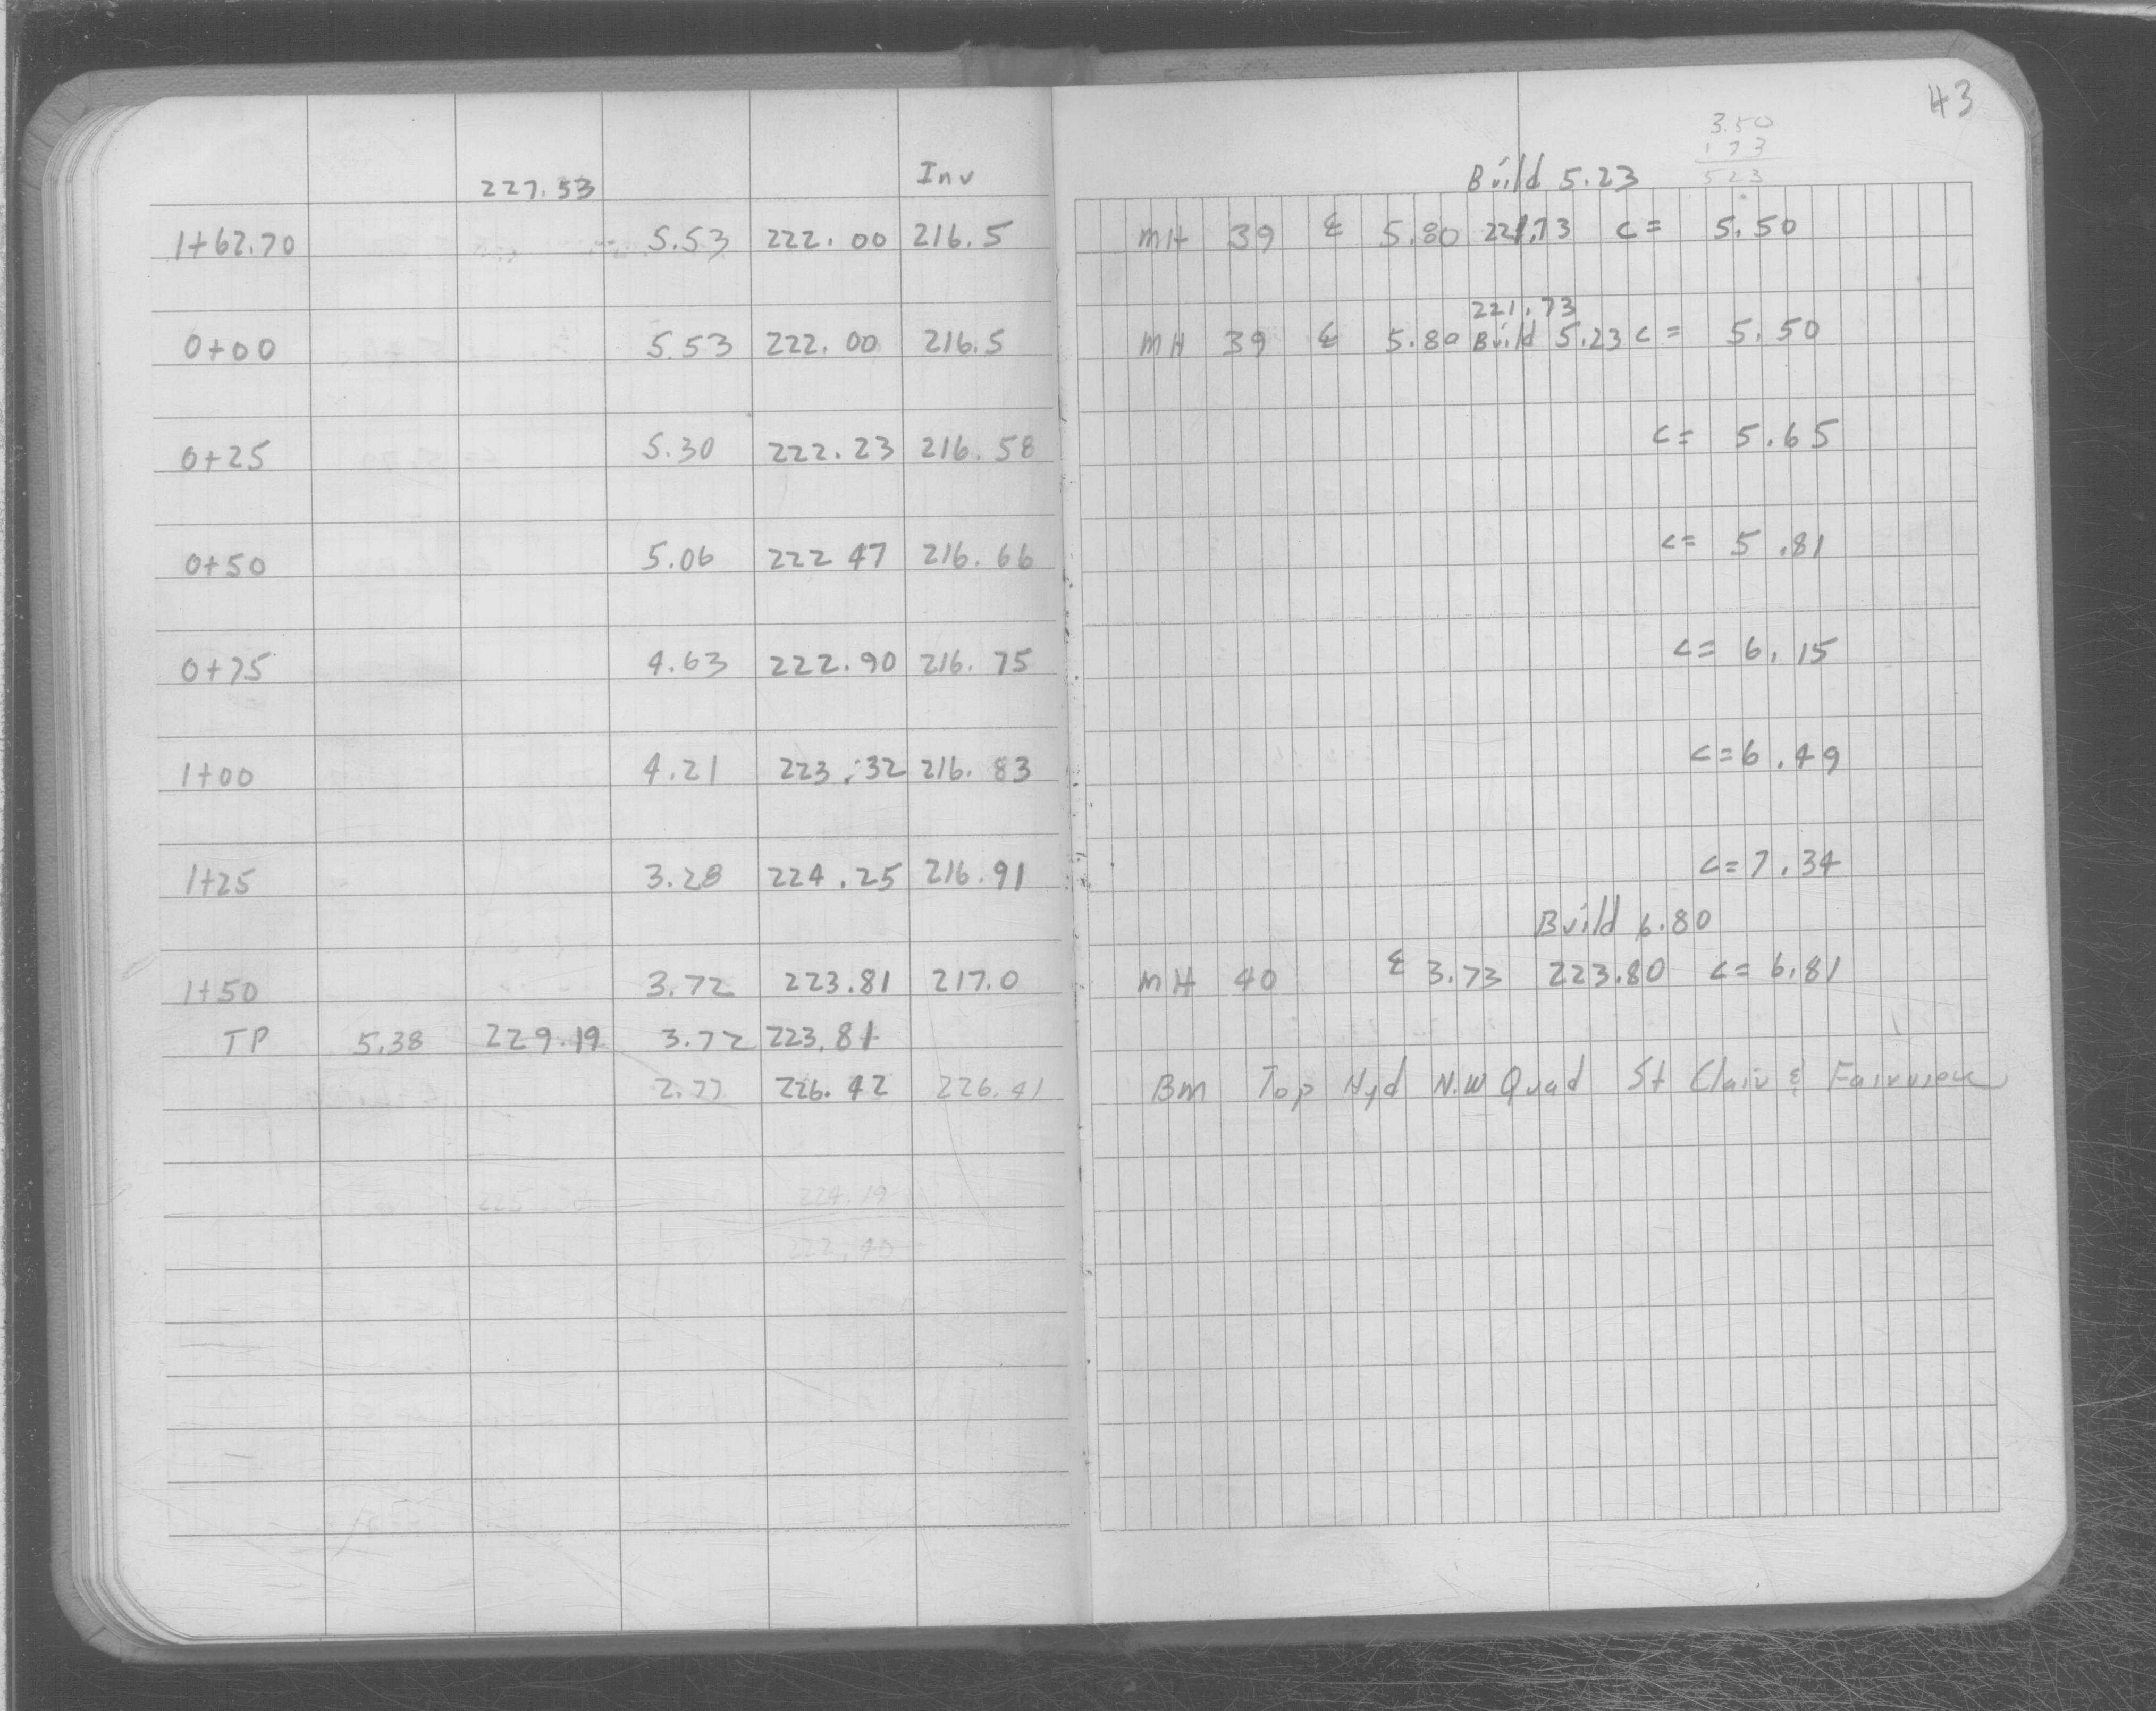 43
3.50
1 73
523
227.53 Inv Build 5.23
1+62.70 5.53 222.00 216.5 MH 39 & 5.80 221.73 c= 5.50
221.73
0+00 5.53 222.00 216.5 MH 39 & 5.80 Build 5.23 c= 5.50
0+25 5.30 222.23 216.58 c= 5.65
0+50 5.06 222 47 216.66 c= 5.81
0+75 4.63 222.90 216.75 c= 6.15
1+00 4.21 223.32 216.83 c=6.49
1+25 3.28 224.25 216.91 c=7.34
Build 6.80
1+50 3.72 223.81 217.0 MH 40 & 3.73 223.80 c= 6.81
TP 5.38 229.19 3.72 223.81
2.77 226.42 226.41 BM Top Hyd N.W Quad St Clair & Fairview
224.19